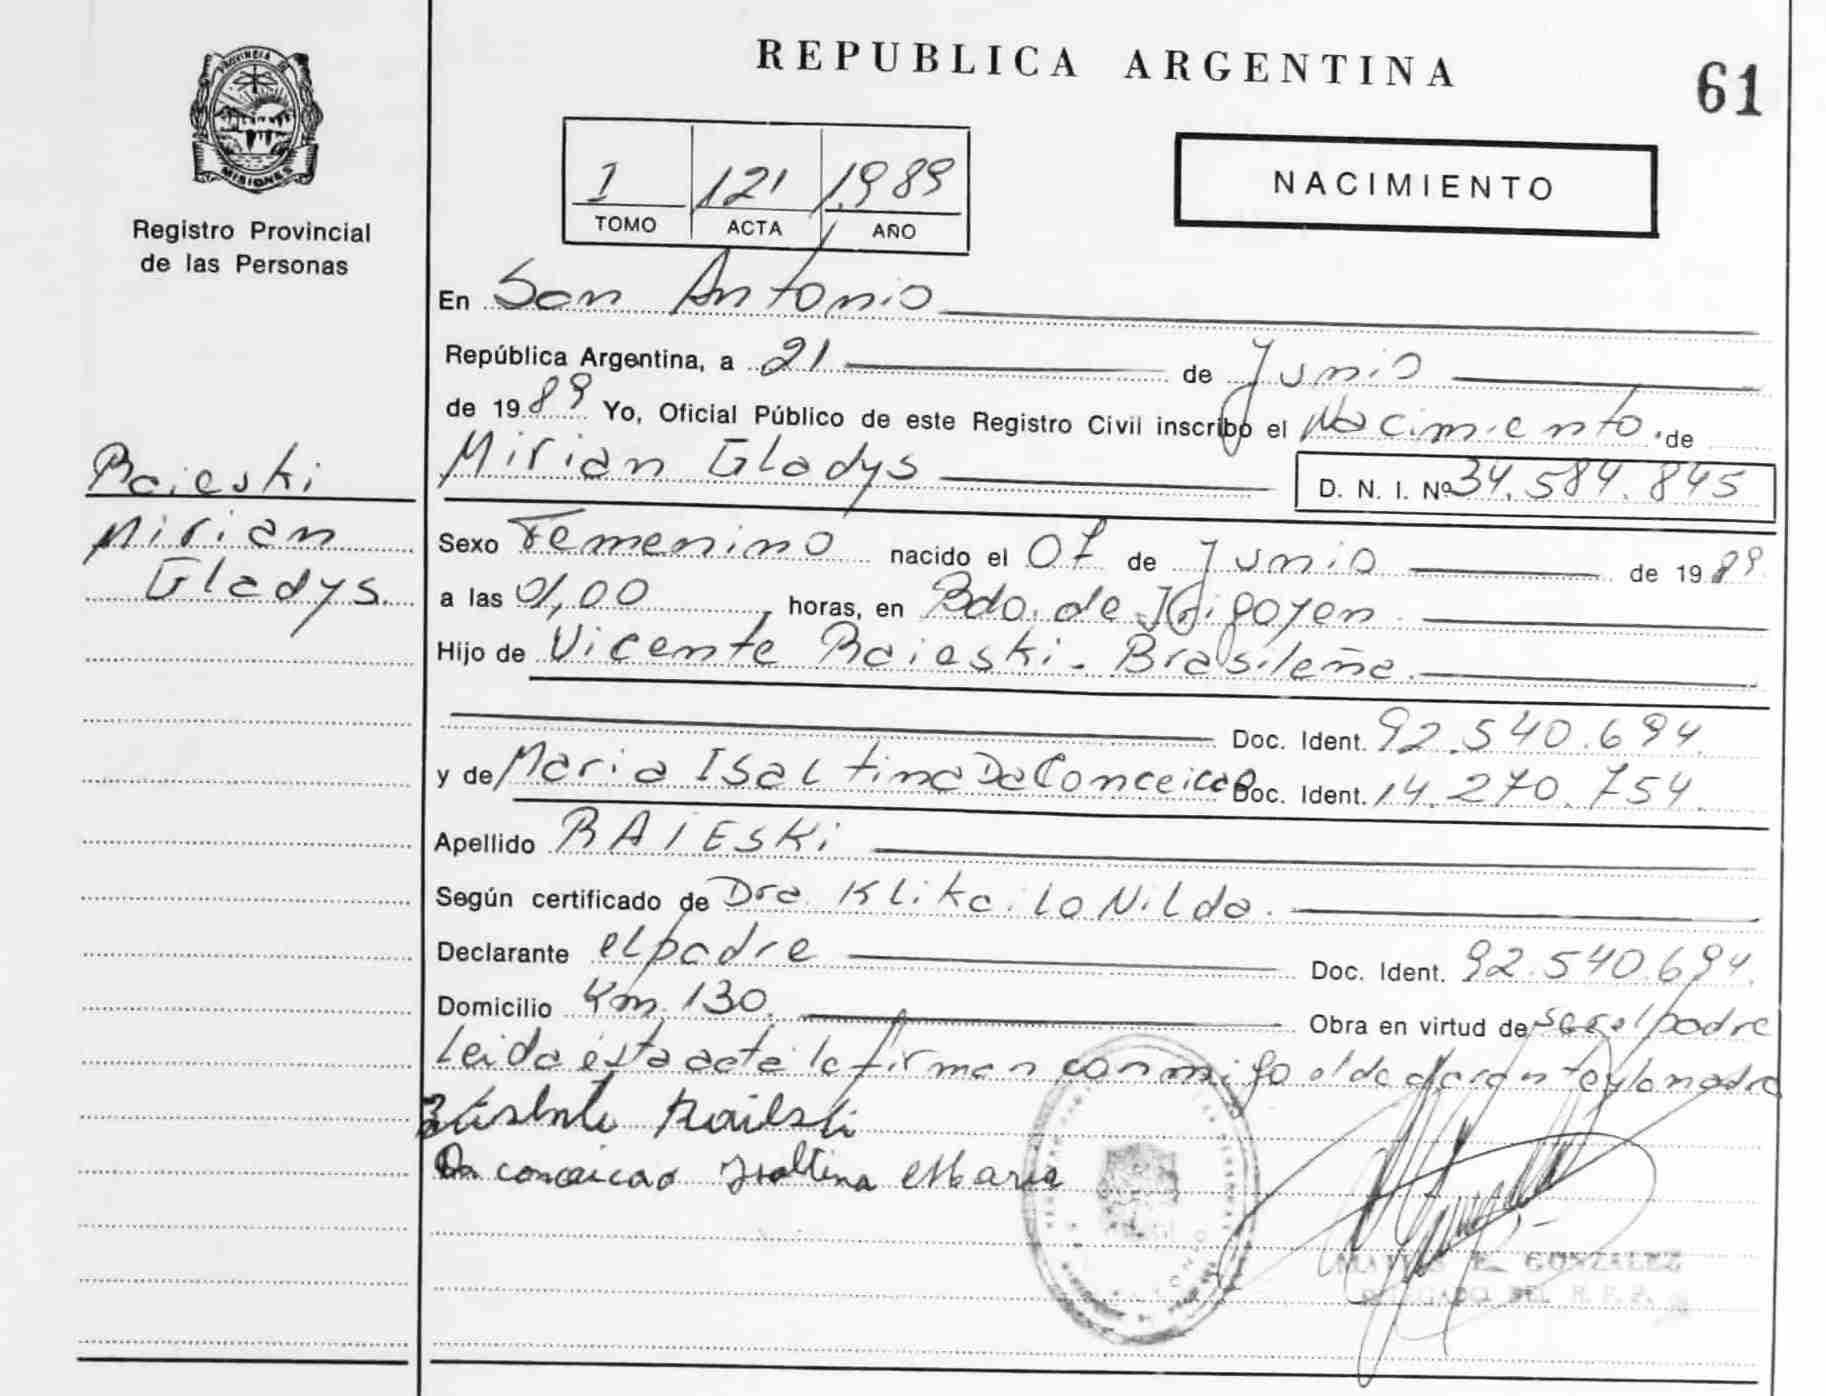 REPUBLICA ARGENTINA
61
PROVINCIA DE
MISIONES
Registro Provincial
de las Personas
1 121 1989
TOMO ACTA AÑO
NACIMIENTO
En San Antonio
República Argentina, a 21 de Junio
de 1989 Yo, Oficial Público de este Registro Civil inscribo el Nacimiento de
Mirian Gladys D. N. I. Nº 34.584.845
Raieski
Mirian
Gladys
Sexo Femenino nacido el 07 de Junio de 1989
a las 01,00 horas, en Bdo. de Irigoyen
Hijo de Vicente Raieski - Brasileña
Doc. Ident. 92.540.694
y de Maria Isaltina Da Conceicao Doc. Ident. 14.270.754
Apellido RAIESKi
Según certificado de Dra. Klikailo Nilda.
Declarante el padre Doc. Ident. 92.540.694
Domicilio Km. 130. Obra en virtud de ser el padre
Leida ésta acta la firman conmigo el declarante y la madre
Raieski
Da conceicao Isaltina Maria
E. GONZALEZ
DELEGADO DEL R.P.P.